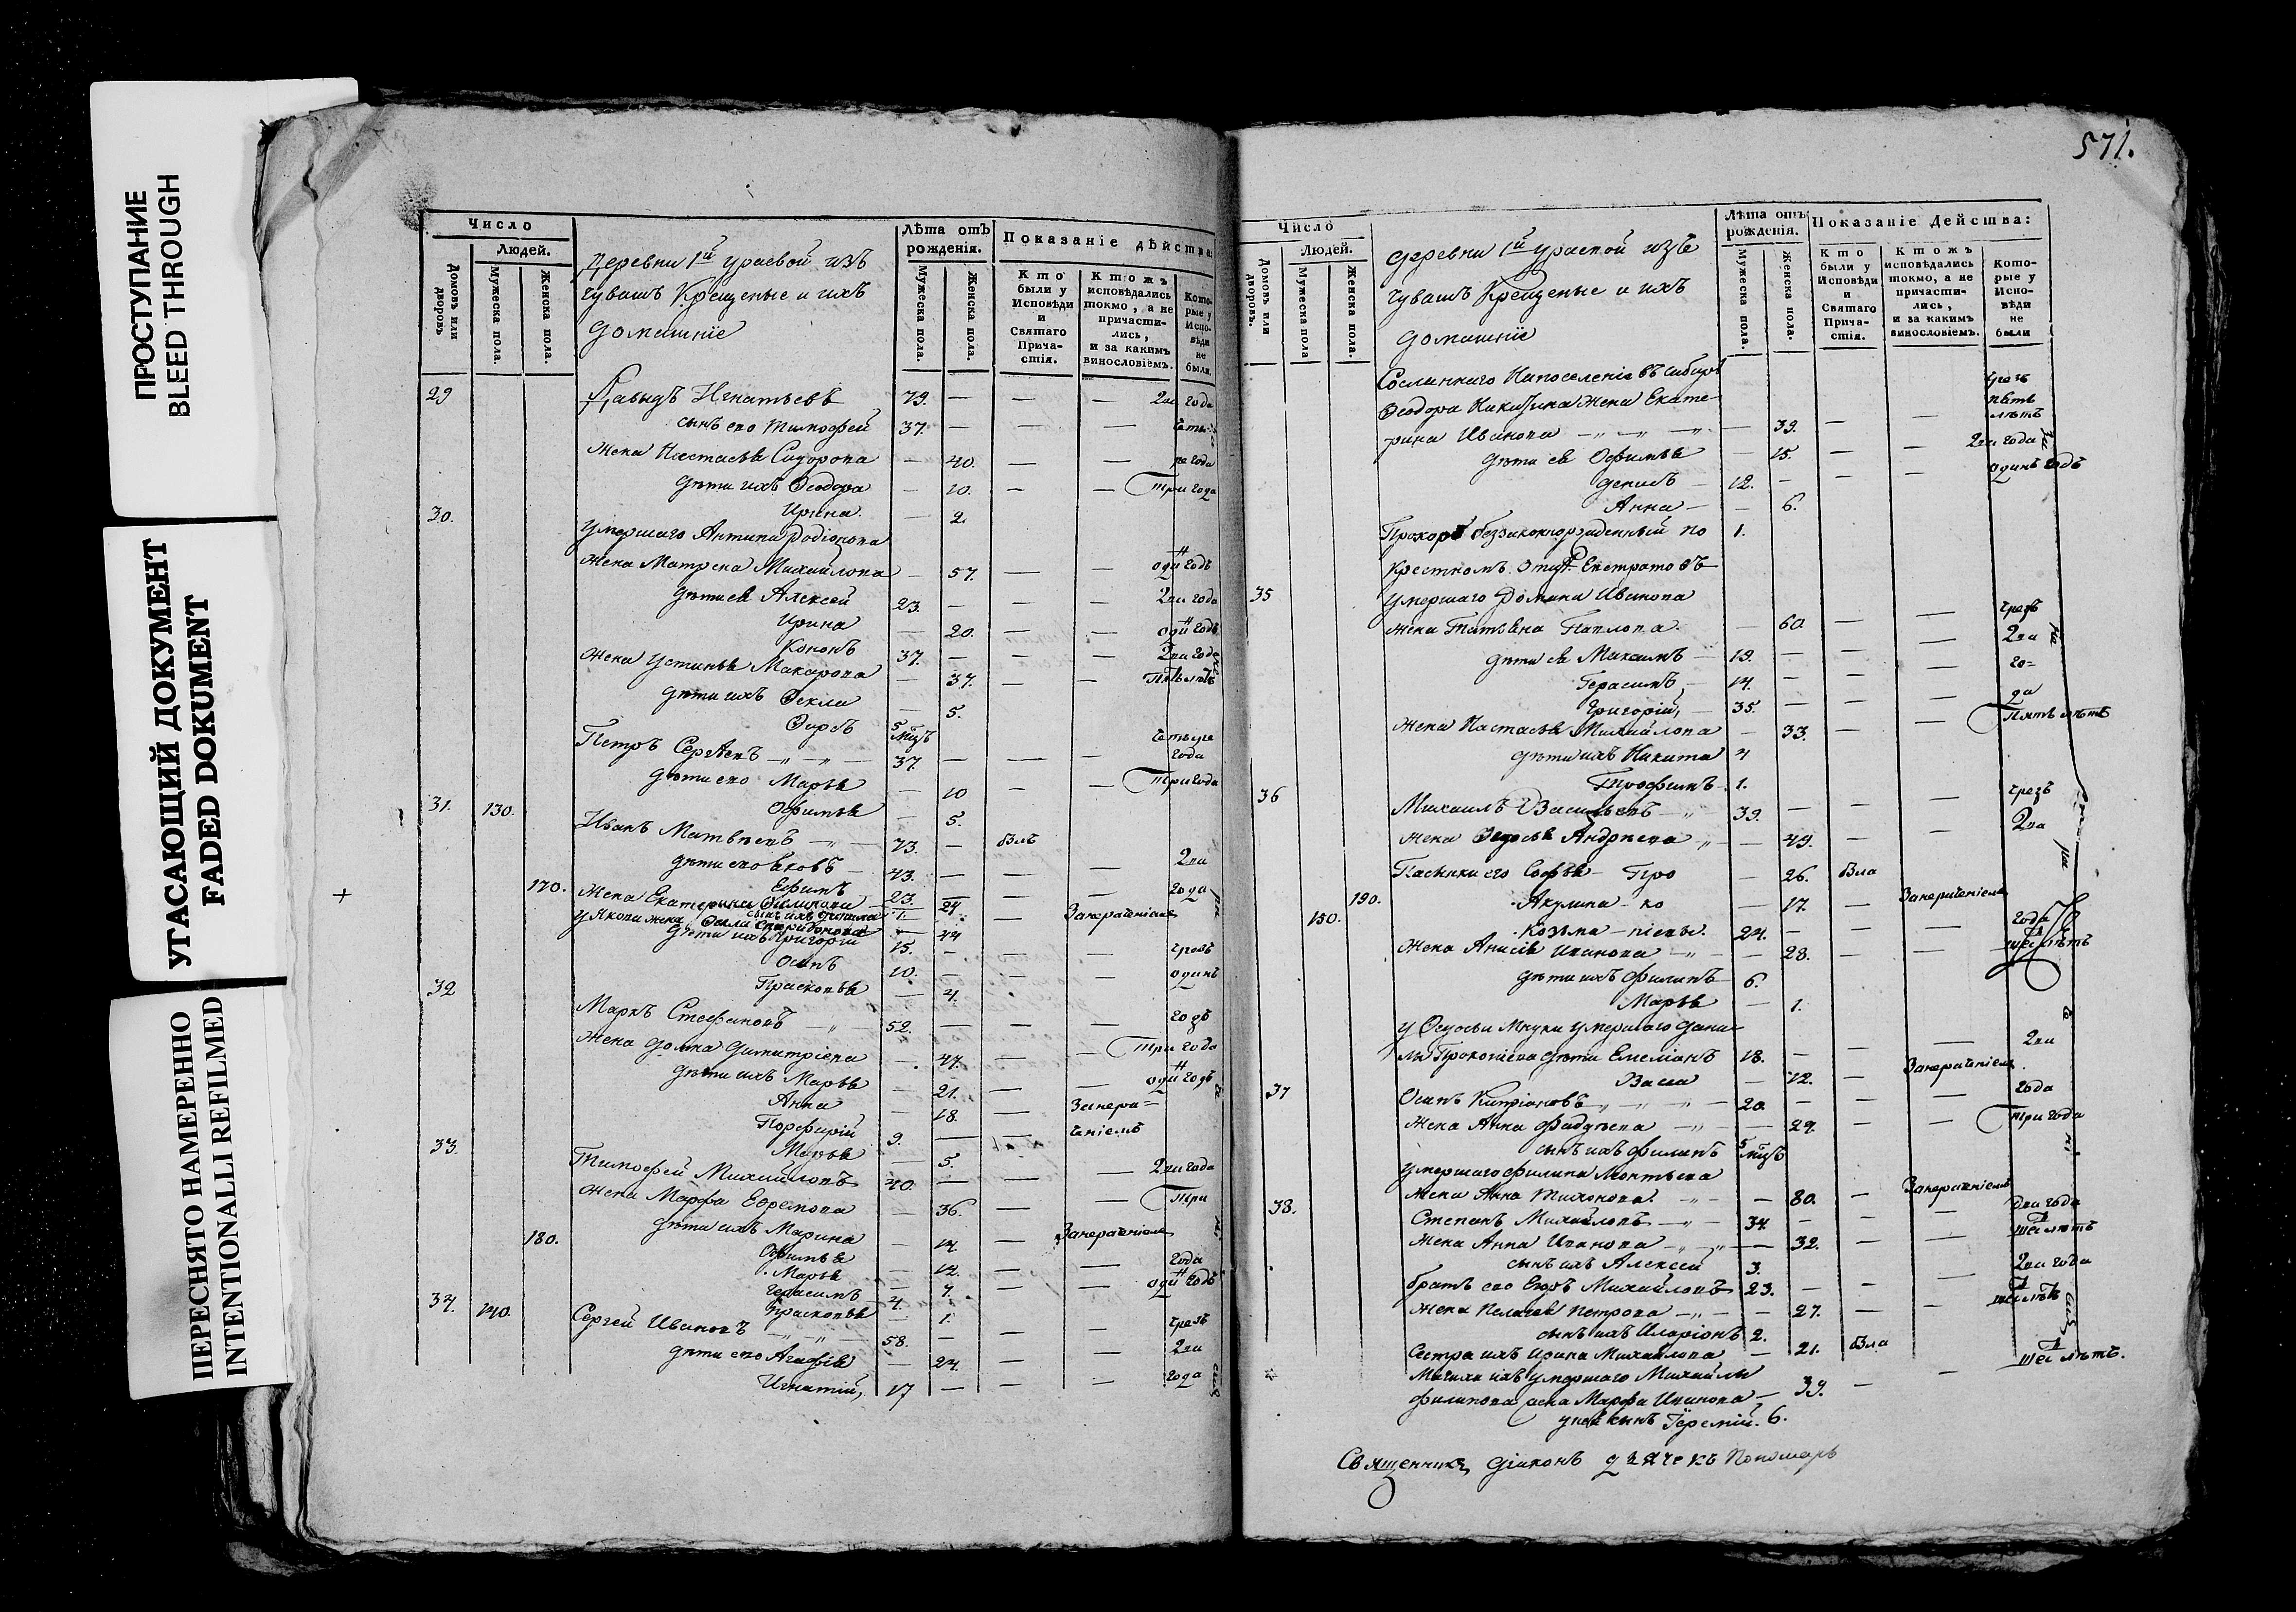 ПРОСТУПАНИЕ
BLEED THROUGH
УГАСАЮЩИЙ ДОКУМЕНТ
FADED DOKUMENT
ПЕРЕСНЯТО НАМЕРЕННО
INTENTIONALLI REFILMED
Число
Людей.
Домовъ или дворовъ.
Мужеска пола.
Женска пола.
Деревни 1й Ураевой изъ
Чувашъ Крещеные и ихъ
домашніе
Лѣта отъ рожденія.
Мужеска пола.
Женска пола.
Показаніе дѣйства
Кто были у Исповѣди и Святаго Причастія.
Ктожъ исповѣдались токмо, а не причастились, и за какимъ винословіемъ.
Которые у Исповѣди не были.
29 Давыдъ Игнатьевъ 79. — — — два года
сынъ его Тимофей 37. — — — четы-
Жена Настасья Сидорова — 40. — — ре года
дѣти ихъ Ѳеодора — 10. — — три года
Ирина. — 2.
30. Умершаго Антипа Родіонова
Жена Матрена Михайлова — 57. — — одинъ годъ
дѣти ея Алексей 23. — — — 2ва года
Ирина — 20. — — одинъ годъ
Кононъ 37. — — — 2ва года
Жена Устинья Макарова — 37. — — Пять лѣтъ
дѣти ихъ Ѳекла — 5.
5 мцъ
Петръ Сергѣевъ 37. — — — четыре года
дѣти его Марья — 10 — — три года
Офимья — 5.
31. 130. Иванъ Матвѣевъ 73. — былъ
дѣти его Яковъ 43. — — — 2ва
Ефимъ 23. — — — года
170. Жена Екатерина Филипова — 24 — За невращеніемъ
У Якова жена Ѳекла Спиридонова — 44
дѣти ихъ Григорій 15. — — — чрезъ
Осипъ 10. — — — одинъ
Прасковья — 4.
32 Маркъ Стефановъ 52. — — — годъ
Жена Домна Димитріева — 44. — — три года
дѣти ихъ Марья — 21. — — одинъ годъ
Анна — 18. —
Порфирій 9. — —
Марья — 5.
33. Тимофей Михайловъ 40. — — — 2ва года
Жена Марфа Ефремова — 36. — — Три
180. дѣти ихъ Марина — 14. —
Офимья — 12. — — года
Марья — 7. — — одинъ годъ
Герасимъ 4.
Прасковья — 1.
34. 140. Сергей Ивановъ 58. — — — чрезъ
дѣти его Агафія — 24. — — 2ва
Игнатій, 17 — — — года
571.
Число
Людей.
Домовъ или дворовъ.
Мужеска пола
Женска пола.
деревни 1й Ураевой изъ
Чувашъ Крещеные и ихъ
домашніе
Лѣта отъ рожденія.
Мужеска пола.
Женска пола.
Показаніе Действа:
Кто были у Исповѣди и Святаго Причастія.
Ктожъ исповѣдались токмо, а не причастились, и за какимъ винословіемъ.
Которые у Исповѣди не были
Сосланнаго на поселеніе въ Сибирь
Ѳеодора Никитина жена Екате-
рина Иванова — 39. — — чрезъ пять лѣтъ
дѣти ея Офимья — 15. — — 2ва года
Денисъ 12. — — — одинъ годъ
Анна — 6.
Прохоръ беззаконнорожденный по 1.
Крестномъ отцѣ Евстратовъ
35 Умершаго Фомина Иванова
Жена Татьяна Павлова. — 60. — — чрезъ
дѣти ея Михаилъ 19. — — — 2ва
Герасимъ 14. — — — го=
Григорій, 35. — — — да
Жена Настасья Михайлова — 33. — — Пять лѣтъ
дѣти ихъ Никита 4
Трофимъ 1.
36 Михаилъ Васильевъ 39. — — — чрезъ
Жена Ѳедосья Андреева — 49. — — 2ва
Пасынки его Софья Про — 26. была
190. Акулина ко — 17. —
150. Козьма піевы. 24. — — — года
Жена Анисія Иванова — 28. — — шесть лѣтъ
дѣти ихъ Филипъ 6.
Марья — 1.
У Ѳедосьи внуки умершаго Дани-
лы Прокопіева дѣти Емеліанъ 18. — — — 2ва
Васса — 12. —
37 Осипъ Кипріановъ 20. — — — года
Жена Анна Фадѣева — 29. — — три года
сынъ ихъ Филипъ 5 мцъ
Умершаго Филипа Леонтьева
Жена Анна Тихонова. — 80. —
38. Степанъ Михайловъ 34. — — — два года
Жена Анна Иванова — 32. — — шесть лѣтъ
сынъ ихъ Алексей 3.
братъ его Егоръ Михайловъ 23. — — — 2ва года
Жена Пелагея Петрова — 27. — — шесть лѣтъ
сынъ ихъ Иларіонъ 2.
Сестра ихъ Ирина Михайлова — 21. была
Мачиха ихъ умершаго Михайлы
Филипова жена Марфа Иванова — 39. — — шесть лѣтъ.
у нея сынъ Іеремій. 6.
Священникъ діаконъ дьячекъ Пономарь